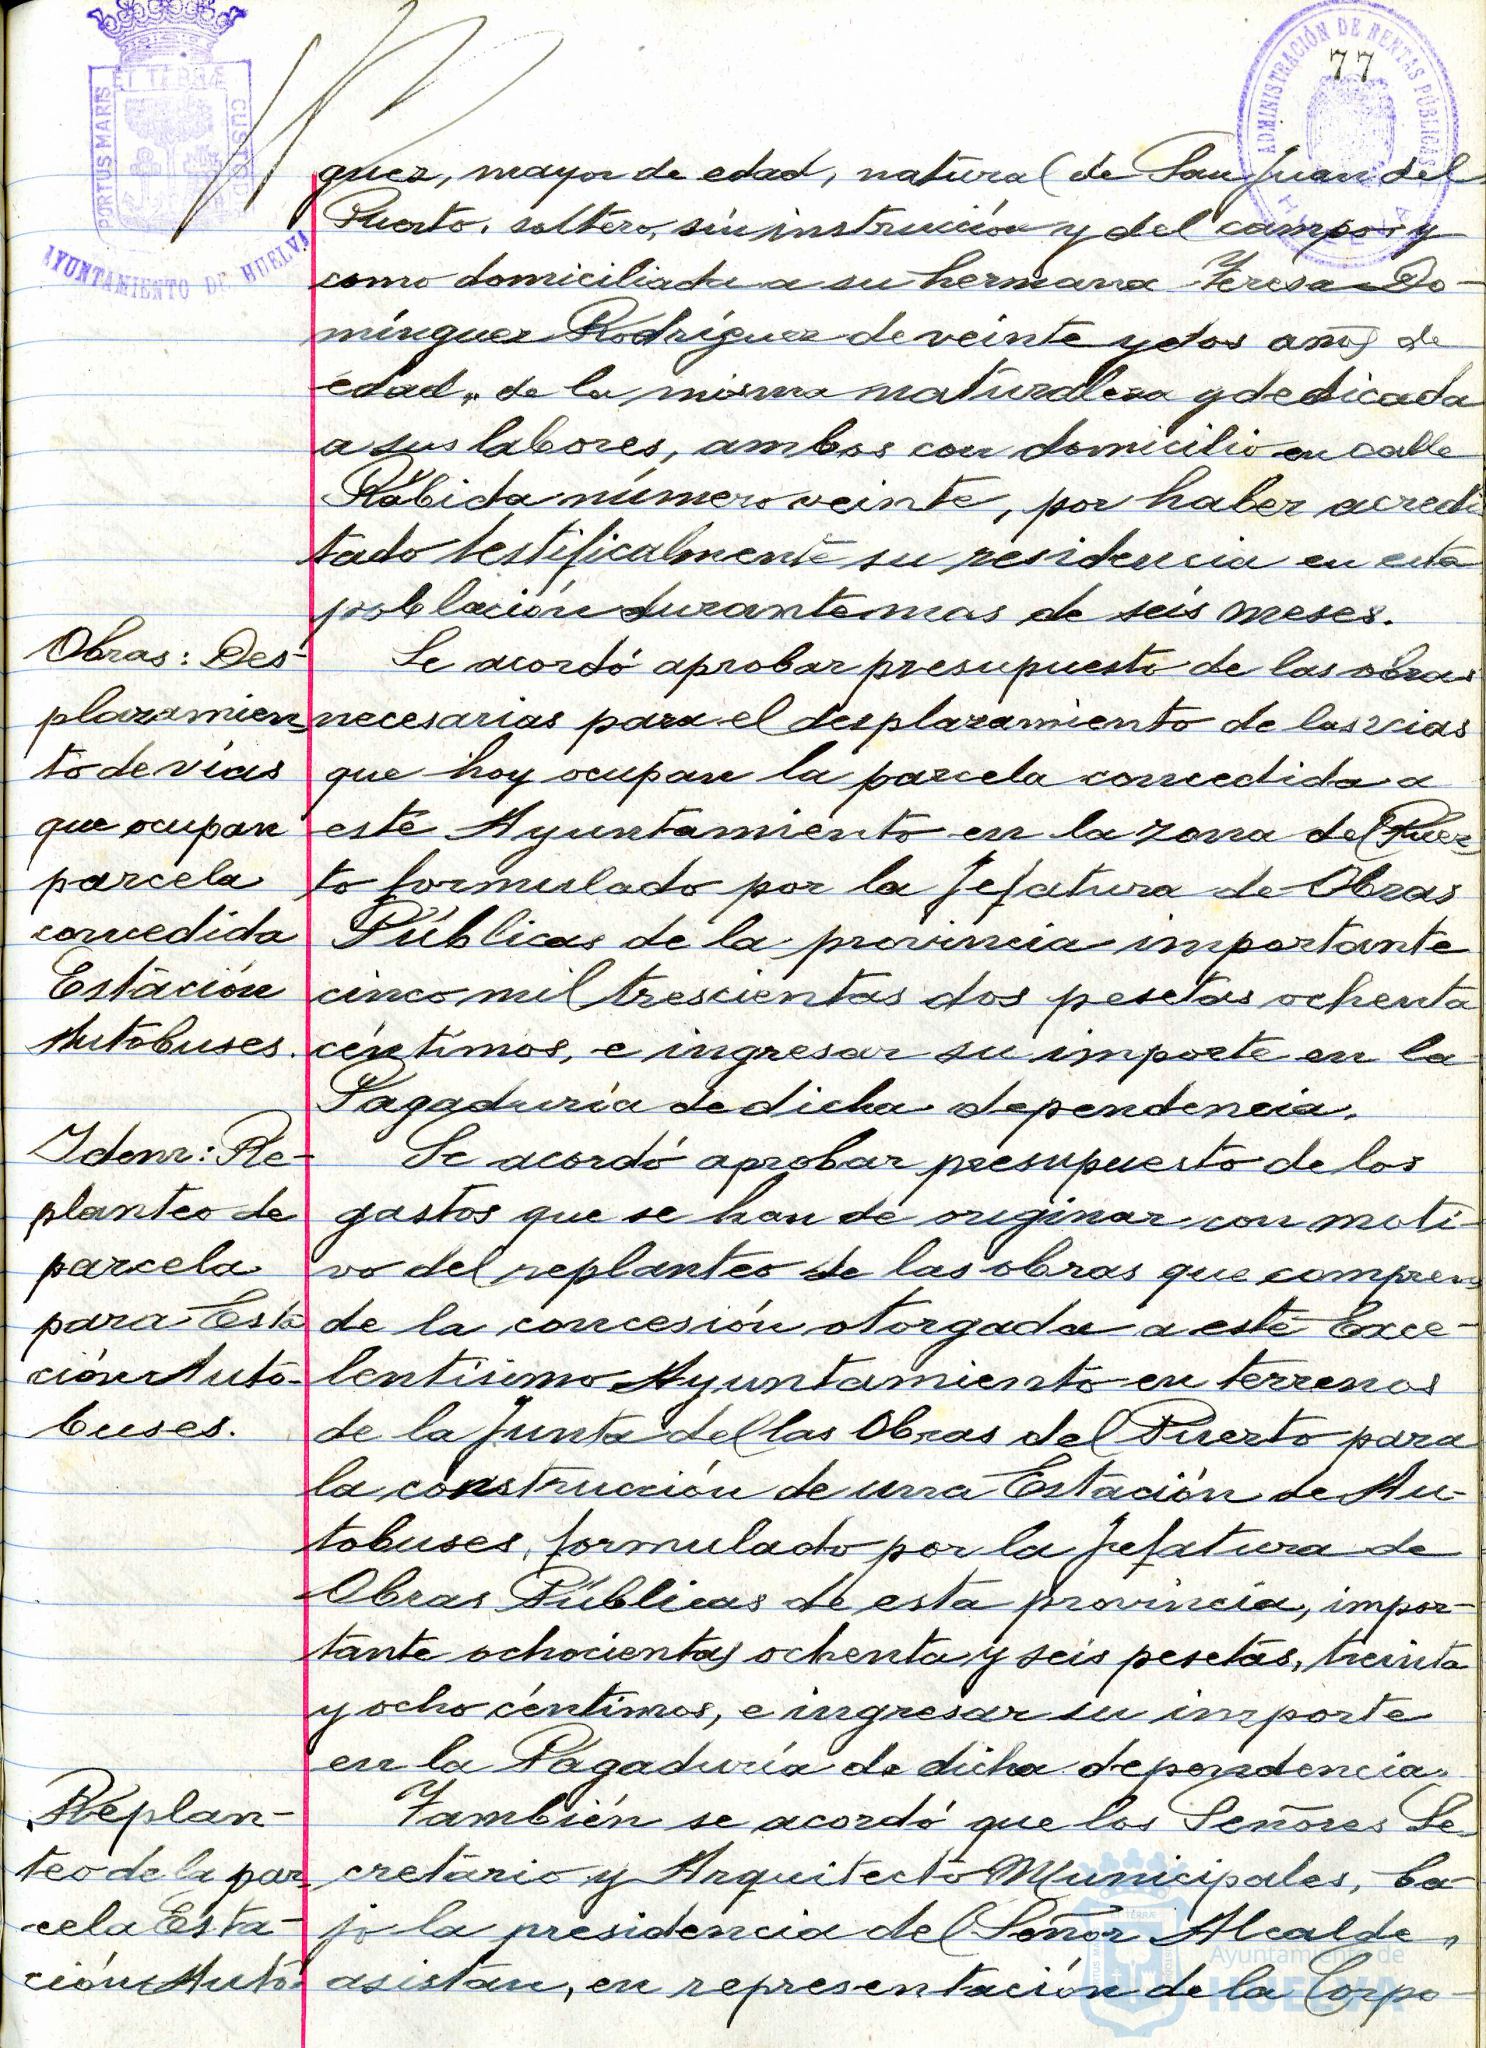 77
ET TERRÆ
PORTUS MARIS
CUSTODIA
AYUNTAMIENTO DE HUELVA
ADMINISTRACIÓN DE RENTAS PÚBLICAS
guez, mayor de edad, natural de San Juan del
Puerto, soltero, sin instrucción y del campo, y
como domiciliada a su hermana Teresa Do-
mínguez Rodríguez de veinte y dos años de
edad, de la misma naturaleza y dedicada
a sus labores, ambos con domicilio en calle
Rábida número veinte, por haber acredi
tado testificalmente su residencia en esta
población durante mas de seis meses.
Obras: Des-
plazamien
to de vías
que ocupan
parcela
concedida
Estación
Autobuses.
Se acordó aprobar presupuesto de las obras
necesarias para el desplazamiento de las vias
que hoy ocupan la parcela concedida a
este Ayuntamiento en la zona del Puer
to formulado por la Jefatura de Obras
Públicas de la provincia importante
cinco mil trescientas dos pesetas ochenta
céntimos, e ingresar su importe en la
Pagaduría de dicha dependencia.
Idem: Re-
planteo de
parcela
para Esta
ción Auto-
buses.
Se acordó aprobar presupuesto de los
gastos que se han de originar con moti-
vo del replanteo de las obras que compren
de la concesión otorgada a este Exce-
lentísimo Ayuntamiento en terrenos
de la Junta del las Obras del Puerto para
la construcción de una Estación de Au-
tobuses, formulado por la Jefatura de
Obras Públicas de esta provincia, impor-
tante ochocientas ochenta y seis pesetas, treinta
y ocho céntimos, e ingresar su importe
en la Pagaduría de dicha dependencia.
Replan-
teo de la par
cela Esta-
ción Auto-
También se acordó que los Señores Se
cretario y Arquitecto Municipales, ba-
jo la presidencia del Señor Alcalde,
asistan, en representación de la Corpo-
Ayuntamiento de
HUELVA